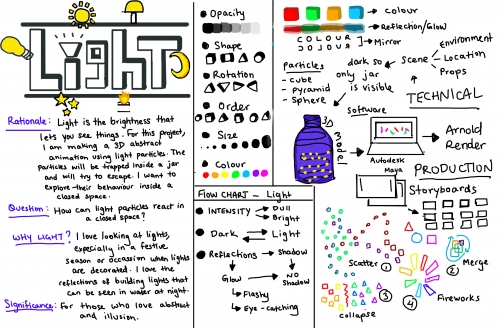 Light
Rationale: Light is the brightness that
lets you see things. For this project,
I am making a 3D abstract
animation using light particles. The
particles will be trapped inside a jar
and will try to escape. I want to
explore their behaviour inside a
closed space.
Question: How can light particles react in
a closed space?
WHY LIGHT? I love looking at lights,
especially in a festive
season or occassion when lights
are decorated. I love the
reflections of building lights that
can be seen in water at night.
Significance: For those who love abstract
and illusion.
Opacity
Shape
Rotation
Order
Size
Colour
FLOW CHART - Light
INTENSITY
Dull
Bright
Dark
Light
Reflections
Shadow
Glow
NO
SHADOW
Flashy
Eye-catching
Colour
Reflection/Glow
COLOUR
COLOUR
Mirror
Particles
- Cube
- Pyramid
- Sphere
dark so
only jar
is visible
Scene
Environment
Location
Props
TECHNICAL
Software
3D
model
Autodesk
Maya
Arnold
Render
PRODUCTION
Storyboards
Scatter 1
2
Merge
3
Collapse
4
Fireworks